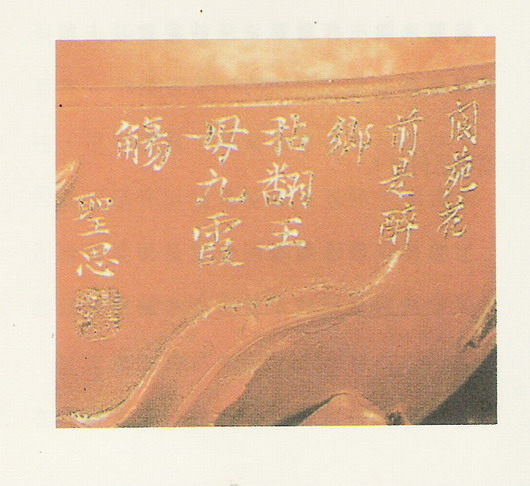 阆苑花
前是醉
鄉
拈翻王
母九霞
觴
聖思